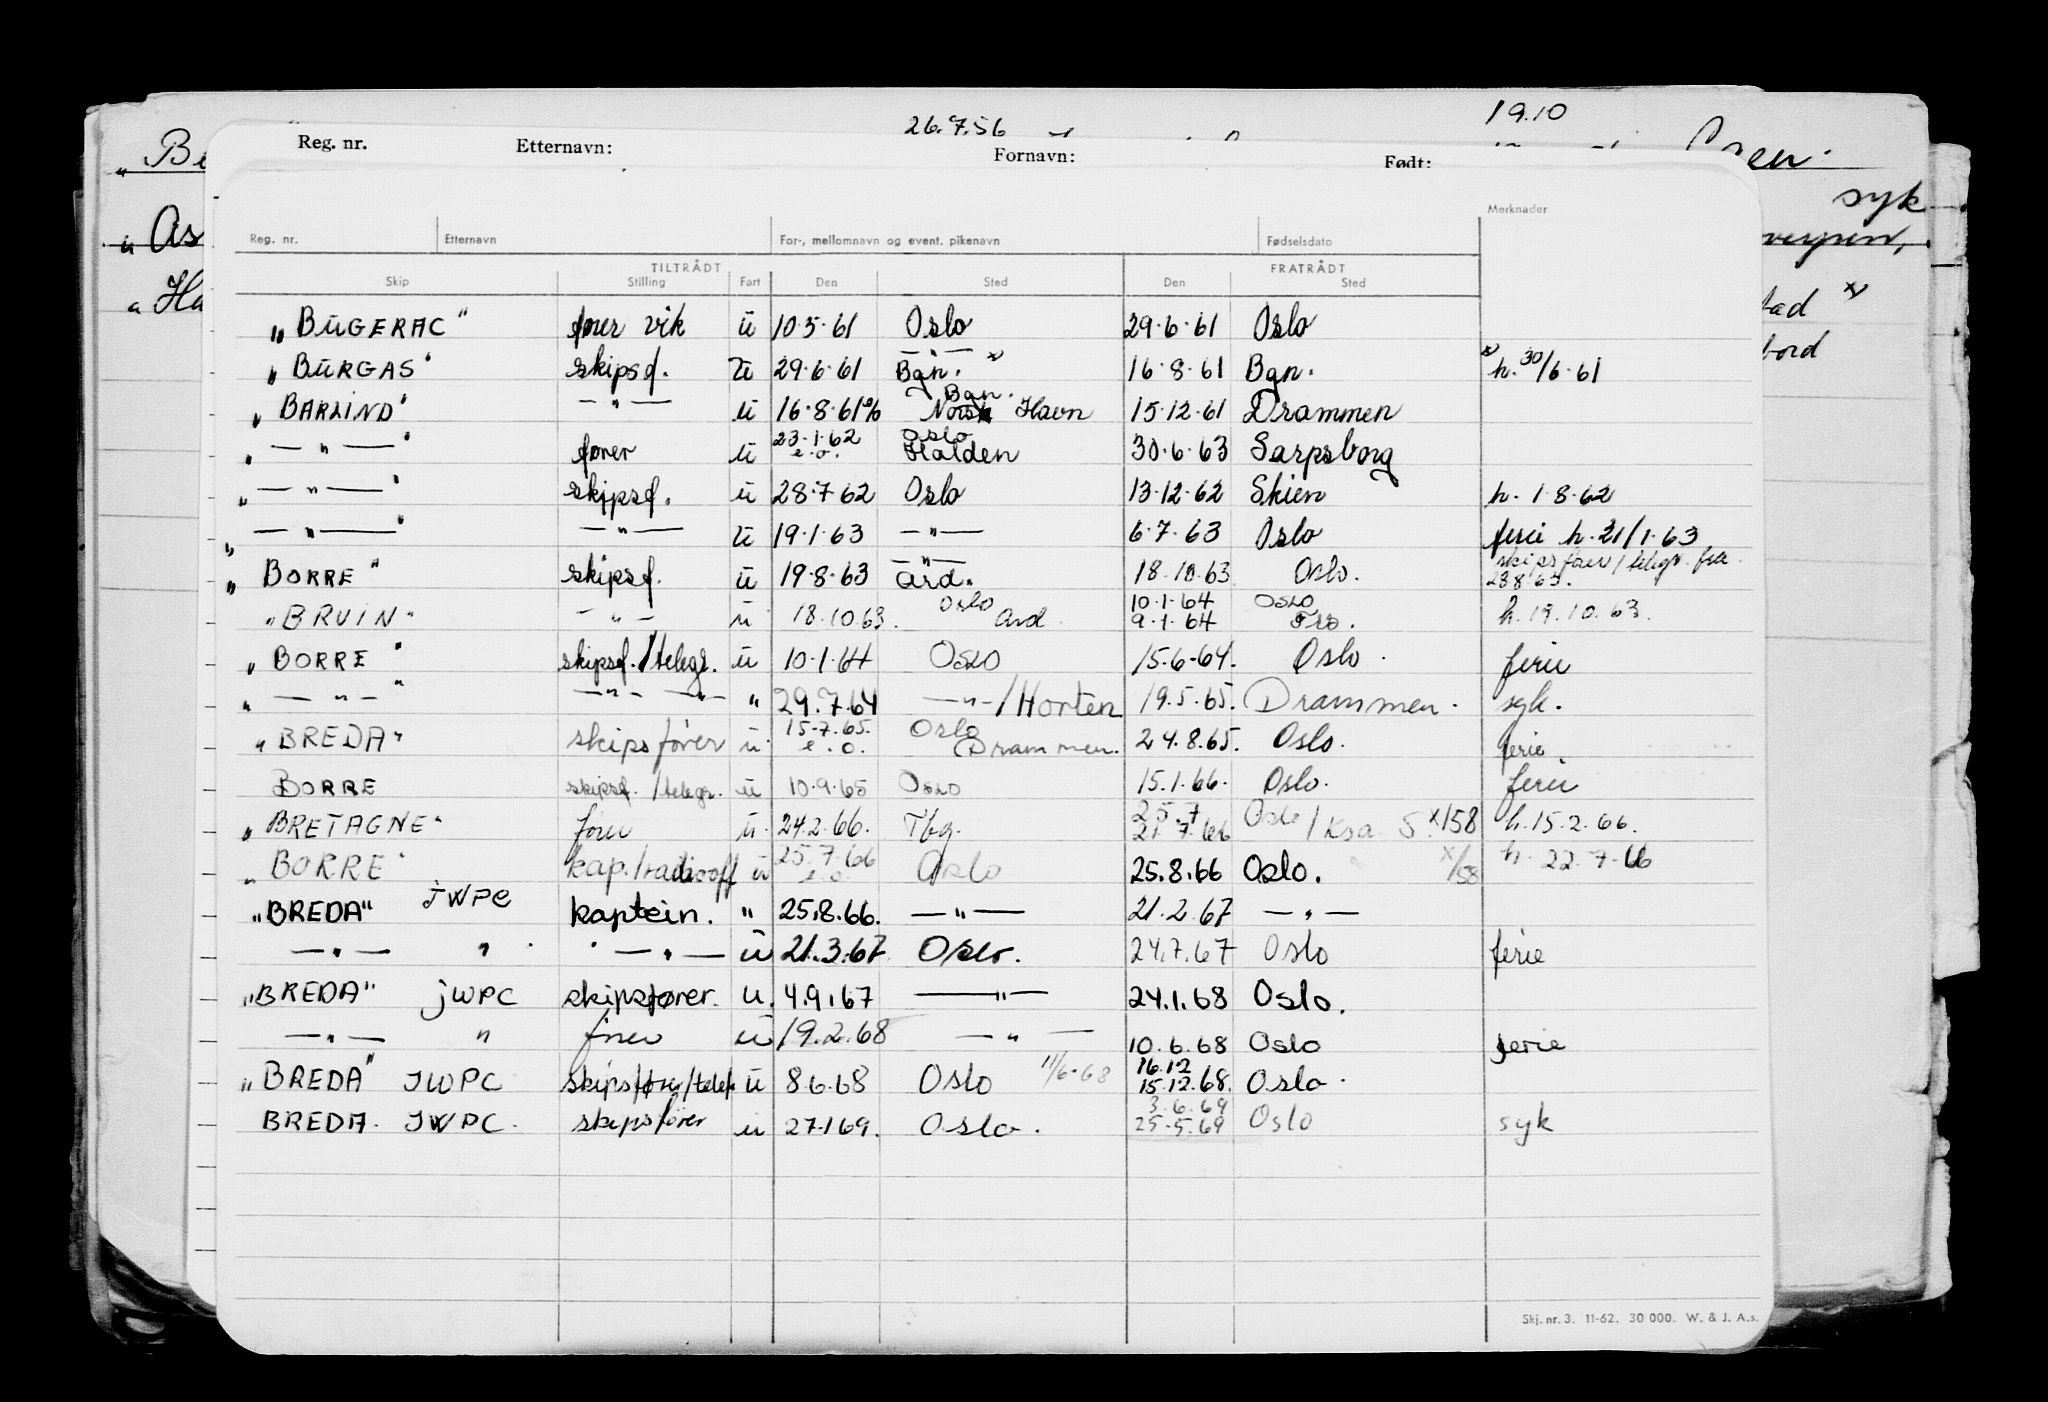 26.7.56 19.10
Reg. nr. Etternavn: Fornavn: Født:
syk
Merknader
Reg. nr. Etternavn For-, mellomnavn og event. pikenavn Fødselsdato
TILTRÅDT FRATRÅDT
Skip Stilling Fart Den Sted Den Sted
„BUGERAC" fører vik u 10.5.61 Oslo 29.6.61 Oslo
„BURGAS" skipsf. u 29.6.61 —"— Bgn. x 16.8.61 Bgn. x h. 30/6.61
„BARLIND" —"— u 16.8.61 % Bgn. Norsk Havn 15.12.61 Drammen
„—"—" fører u 23.1.62 e.o. Oslo Halden 30.6.63 Sarpsborg
„—"—" skipsf. u 28.7.62 Oslo 13.12.62 Skien h. 1.8.62
„—"—" —"— u 19.1.63 —"— 6.7.63 Oslo ferie h. 21/1.63
„BORRE" skipsf. u 19.8.63 —"— Ård. 18.10.63 Oslo. skipsfører/telegr. fra 23.8.63.
„BRUIN" —"— u 18.10.63. Oslo Ård. 10.1.64 9.1.64 Oslo h. 19.10.63.
„BORRE" skipsf./telegr. u 10.1.64 Oslo 15.6.64. Oslo. ferie
„—"—" —"— —"— " 29.7.64 —"—/Horten 19.5.65. Drammen. syk.
„BREDA" skipsfører u 15.7.65. e.o. Oslo Drammen. 24.8.65. Oslo. ferie
BORRE skipsf./telegr. u 10.9.65 Oslo 15.1.66. Oslo. ferie
„BRETAGNE" fører u. 24.2.66. Tbg. 25.7 21.7.66 Oslo/Ksa. S. x/58 h. 15.2.66.
„BORRE" kap./radiooff u 25.7.66 e.o. Oslo 25.8.66 Oslo. x/58 h. 22.7.66
„BREDA" JWPC kaptein. " 25.8.66. —"— 21.2.67 —"—
—"— " —"— u 21.3.67 Oslo. 24.7.67 Oslo ferie
„BREDA" JWPC skipsfører. u. 4.9.67 —"— 24.1.68 Oslo.
—"— " fører u 19.2.68 —"— 10.6.68 Oslo ferie
„BREDA" JWPC skipsfører/telef u 8.6.68 Oslo 11/6.68 16.12 15.12.68. Oslo.
BREDA. JWPC. skipsfører u 27.1.69. Oslo. 3.6.69 25.5.69 Oslo syk
Skj. nr. 3. 11-62. 30 000. W. & J. A.s.